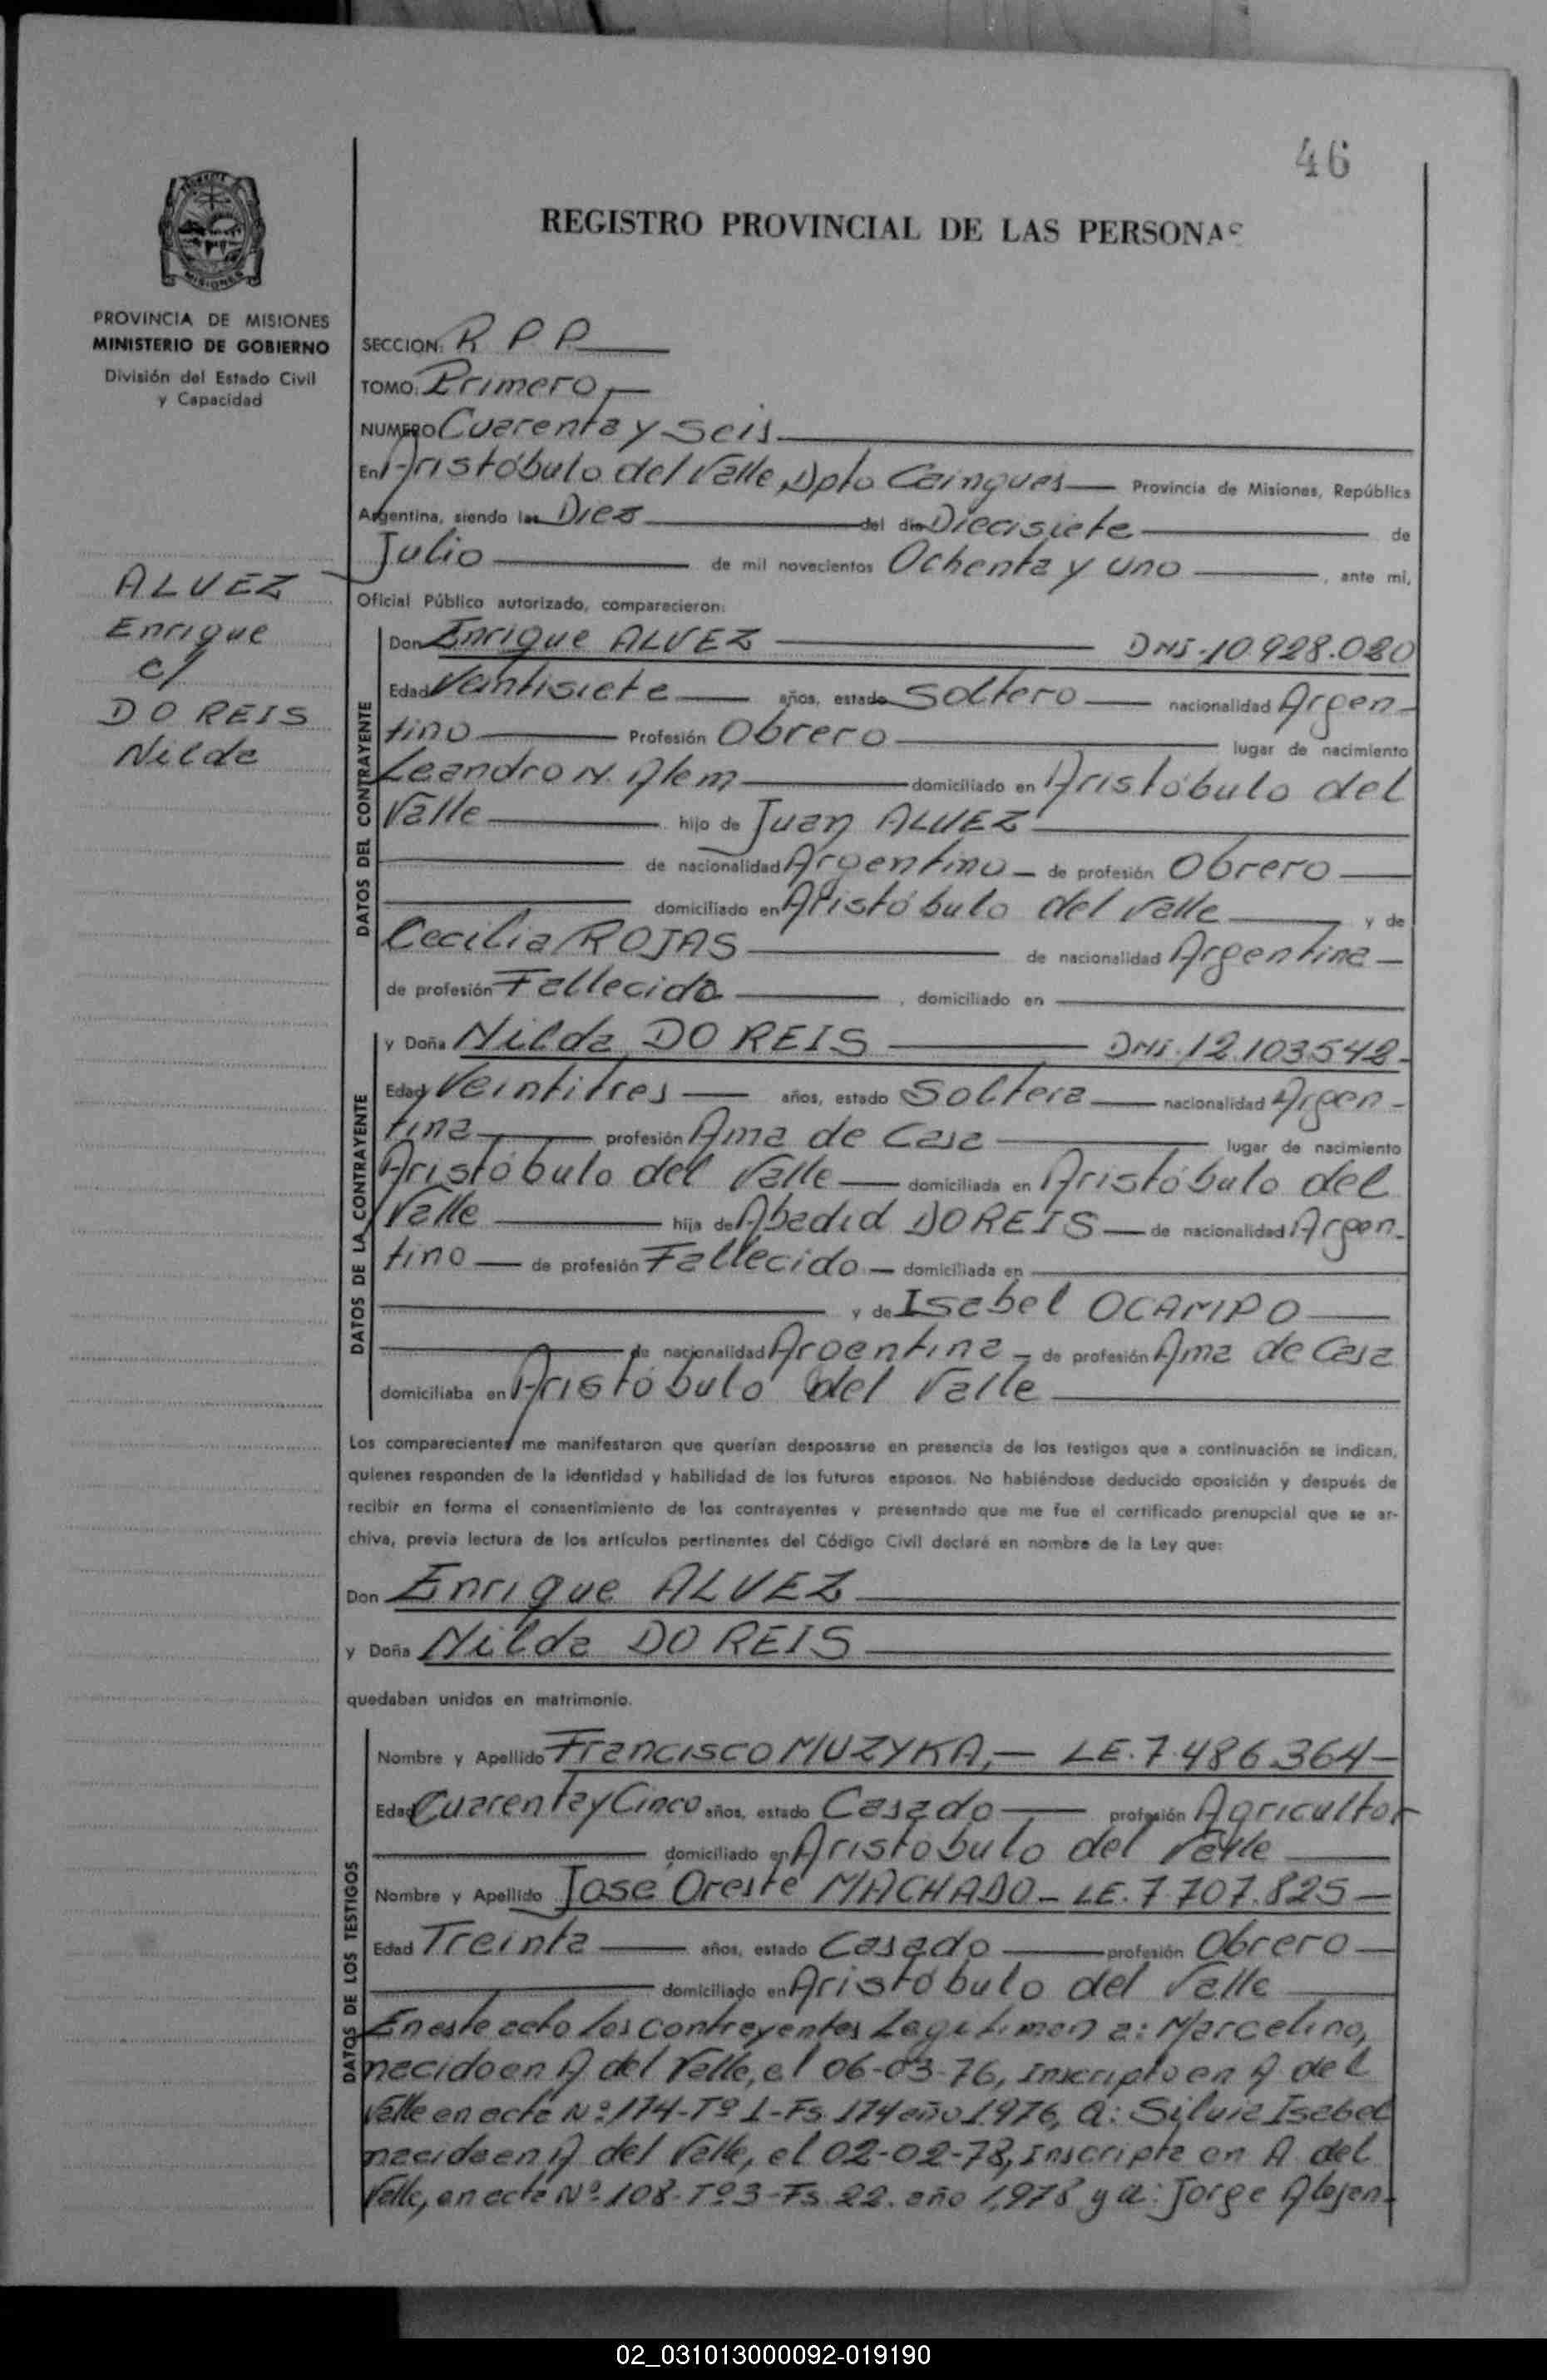 46
REGISTRO PROVINCIAL DE LAS PERSONAS
MISIONES
PROVINCIA DE MISIONES
MINISTERIO DE GOBIERNO
División del Estado Civil
y Capacidad
SECCION: R P P
TOMO: Primero
NUMERO Cuarenta y Seis
En Aristóbulo del Valle Dpto Cainguas Provincia de Misiones, República
Argentina, siendo las Diez del día Diecisiete de
Julio de mil novecientos Ochenta y uno, ante mi,
Oficial Público autorizado, comparecieron:
ALVEZ
Enrique
c/
DO REIS
Nilda
DATOS DEL CONTRAYENTE
Don Enrique ALVEZ DNI. 10.928.020
Edad Veintisiete años, estado Soltero nacionalidad Argen-
tino Profesión Obrero lugar de nacimiento
Leandro N. Alem domiciliado en Aristóbulo del
Valle hijo de Juan ALVEZ
de nacionalidad Argentino de profesión Obrero
domiciliado en Aristóbulo del Valle y de
Cecilia ROJAS de nacionalidad Argentina
de profesión Fallecida, domiciliado en
DATOS DE LA CONTRAYENTE
y Doña Nilda DO REIS DNI. 12.103.542
Edad Veintitres años, estado Soltera nacionalidad Argen-
tina profesión Ama de Casa lugar de nacimiento
Aristóbulo del Valle domiciliada en Aristóbulo del
Valle hija de Abedid DO REIS de nacionalidad Argen-
tino de profesión Fallecido domiciliada en
y de Isabel OCAMPO
de nacionalidad Argentina de profesión Ama de Casa
domiciliaba en Aristóbulo del Valle
Los comparecientes me manifestaron que querían desposarse en presencia de los testigos que a continuación se indican,
quienes responden de la identidad y habilidad de los futuros esposos. No habiéndose deducido oposición y después de
recibir en forma el consentimiento de los contrayentes y presentado que me fue el certificado prenupcial que se ar-
chiva, previa lectura de los artículos pertinentes del Código Civil declaré en nombre de la Ley que:
Don Enrique ALVEZ
y Doña Nilda DO REIS
quedaban unidos en matrimonio.
DATOS DE LOS TESTIGOS
Nombre y Apellido Francisco MUZYKA, LE. 7.486.364
Edad Cuarenta y Cinco años, estado Casado profesión Agricultor
domiciliado en Aristóbulo del Valle
Nombre y Apellido José Oreste MACHADO - LE. 7.707.825
Edad Treinta años, estado Casado profesión Obrero
domiciliado en Aristóbulo del Valle
En este acto los contrayentes Legitiman a: Marcelino,
nacido en A. del Valle, el 06-03-76, Inscripto en A. del
Valle en acta Nº 174-Tº 1-Fs. 174 año 1976, a: Silvia Isabel
nacida en A. del Valle, el 02-02-78, Inscripta en A. del
Valle, en acta Nº 108-Tº 3-Fs. 22. año 1,978 y a: Jorge Alejan-
02_031013000092-019190